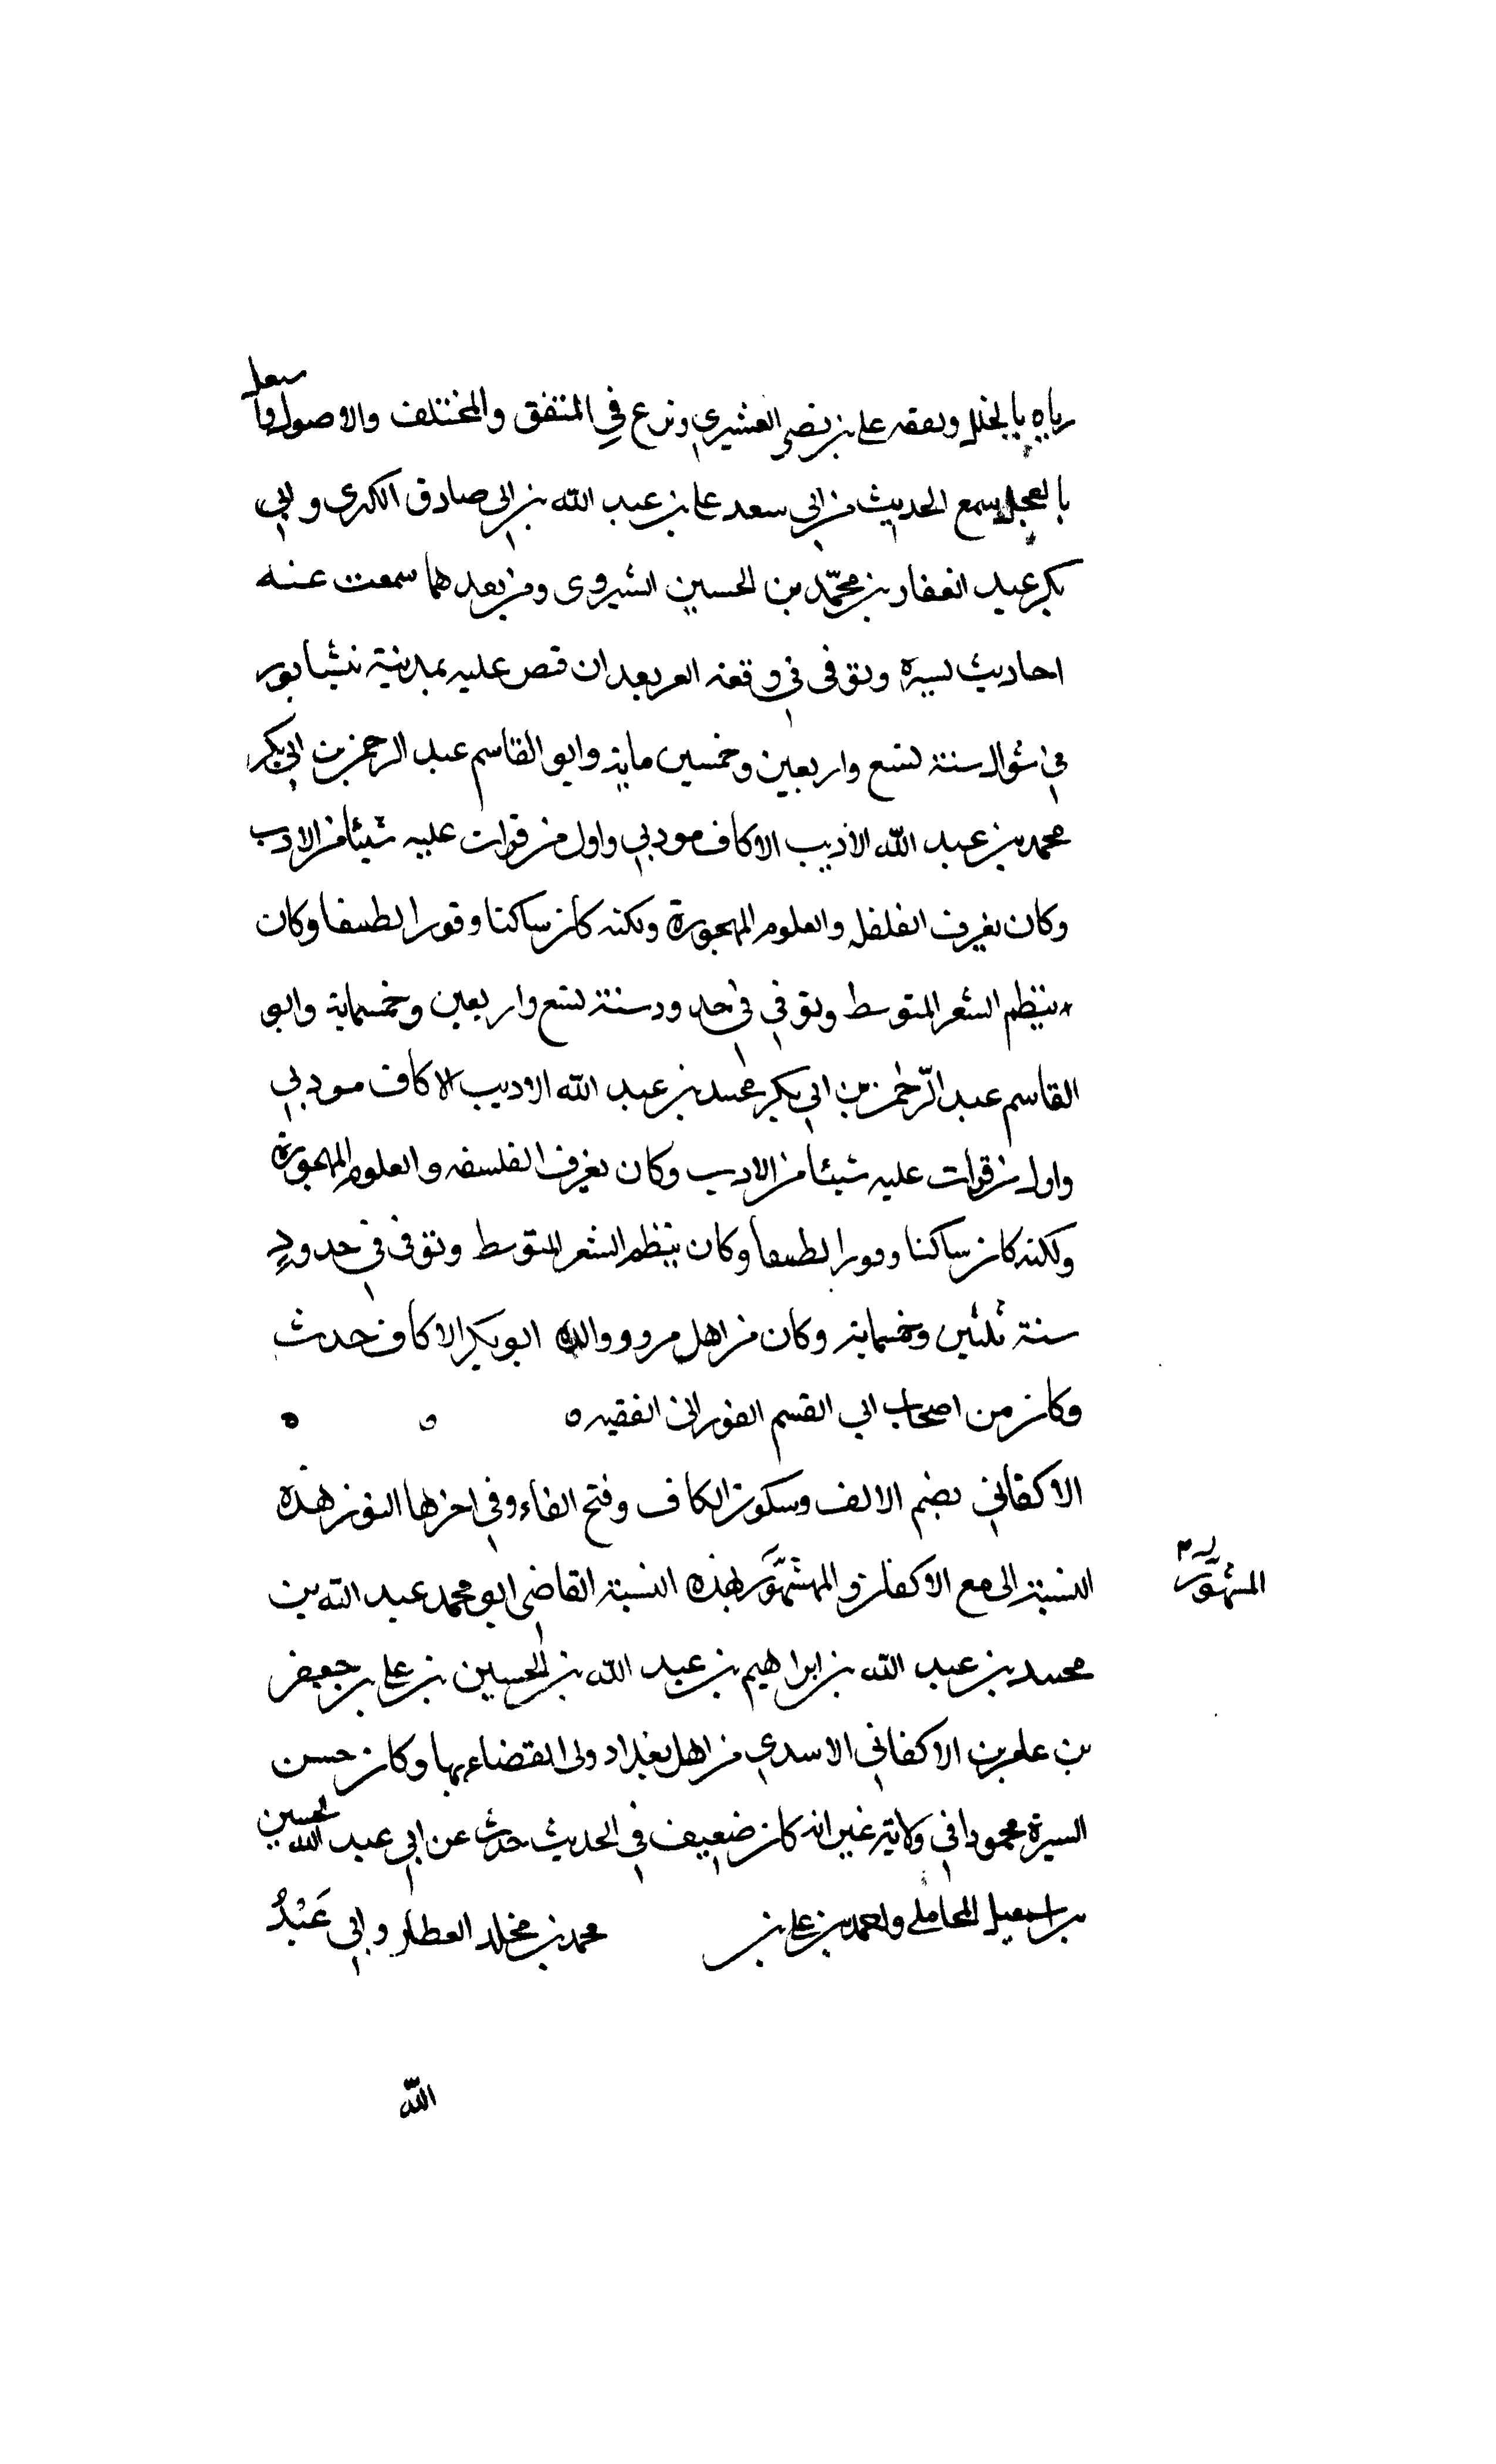 رباه بالخلل وتفقه على بن نصر القشيري وبرع في المتفق والمختلف والاصول وا سعل
بالعجل سمع الحديث من ابي سعد على بن عبد الله بن ابى صادق الكرى وابي
بكر عبد الغفار بن محمّد بن الحسين الشيروى ومن بعدهما سمعت عنه
احاديث يسيرة وتوفى في وقعة الغز بعد ان قبص عليه بمدينة نيشابور
في شوال سنة تسع واربعين وخمسين ماية وابو القاسم عبد الرحمن بن ابي بكر
محمد بن عبد الله الاديب الاكاف مودبي واول من قرات عليه شيئا من الادب
وكان يعرف الفلفل والعلوم المهجورة ولكنه كان ساكنا وقورا لطيفا وكان
ينظم الشعر المتوسط وتوفي في حدود سنة تسع واربعين وخمسماية وابو
القاسم عبد الرّحمن بن ابي بكر محمد بن عبد الله الاديب الاكاف مودبي
واول من قرات عليه شيئا من الادب وكان يعرف الفلسفه والعلوم المهجورة
ولكنه كان ساكنا وقورا لطيفا وكان ينظم الشعر المتوسط وتوفى في حدود
سنة ثلثين وخمسماية وكان من اهل مرو ووالده ابو بكر الاكاف حدث
وكان من اصحاب ابي القسم الفوراني الفقيه ه ه ه
الاكفاني بضم الالف وسكون الكاف وفتح الفاء وفي اخرها النون هذه
النسبة الى مع الاكفان والمهشهّور بهذه النسبة القاضى ابو محمد عبد الله بن
المشهّور
محمد بن عبد الله بن ابراهيم بن عبد الله بن الحسين بن على بن جعفر
بن علم بن الاكفاني الاسدي من اهل بغداد ولى القضاء بها وكان حسن
السيرة محمودا في ولايته غير انه كان ضعيف في الحديث حدث عن ابي عبد الله الحسين
بن اسمعيل المحاملي واحمد بن على بن محمد بن مخلد العطار وابي عَبْدُ
الله